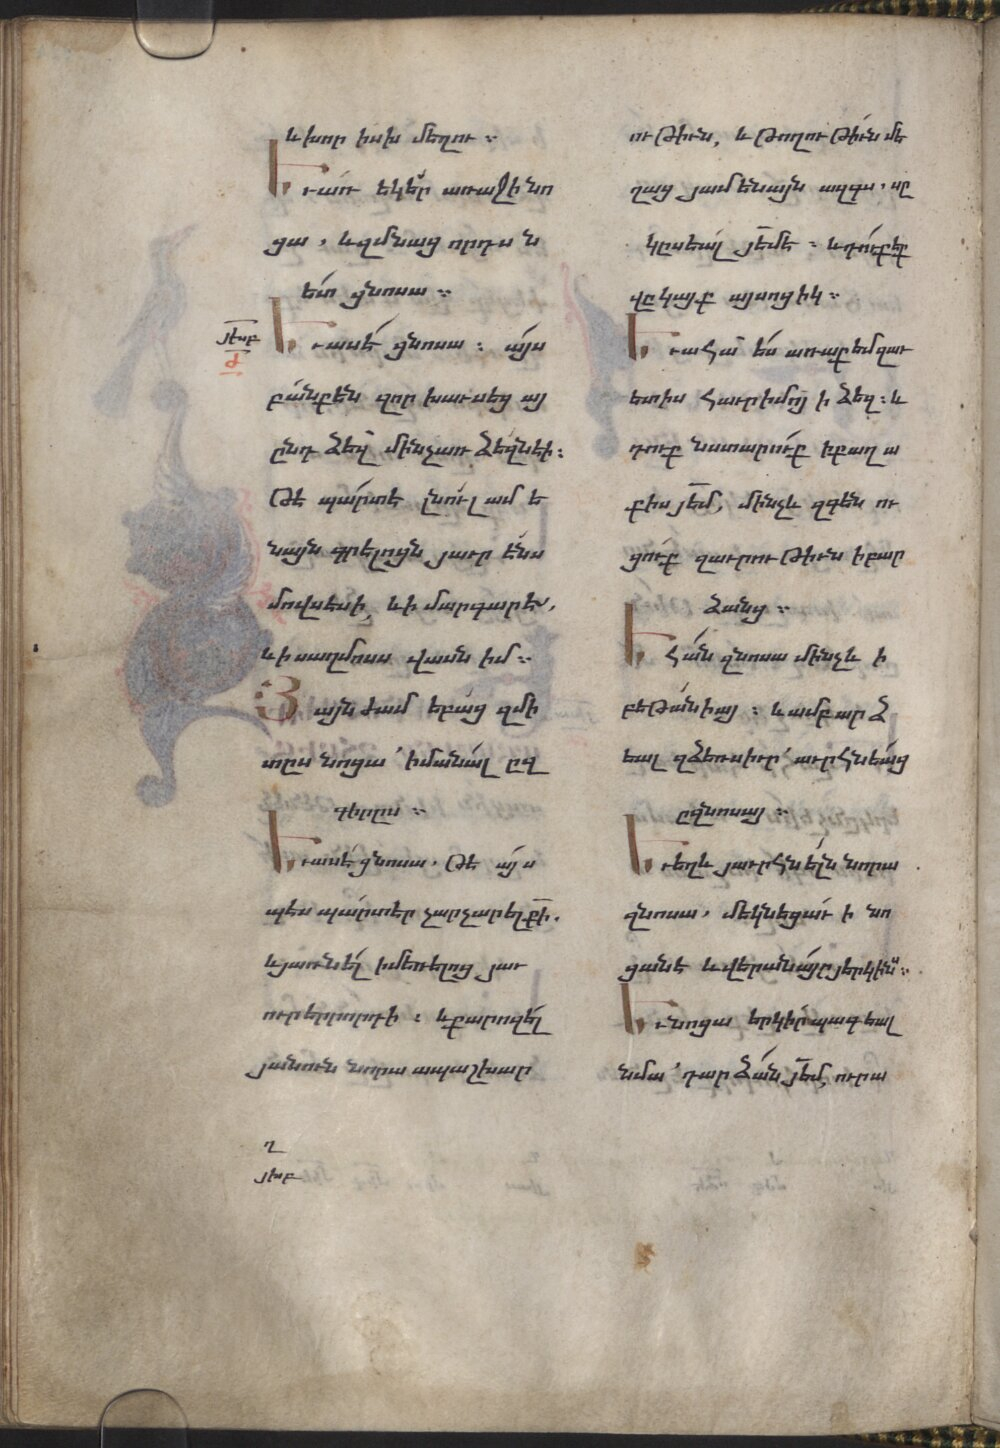 և խորիսխ մեղու ։
Եւ առ եկեր առաջի նո
ցա, և զմնացորդսն
ետ ցնոսա ։
Եւ ասէ ցնոսա ։ այս
բանքեն զոր խաւսեցայ
ընդ ձեզ մինչառ ձեզն էի ։
թե պարտ է լնուլ ամե
նայն գրելոցն յաւրէնս
մովսեսի, և ի մարգարես,
և ի սաղմոսս վասն իմ ։
Յայնժամ եբաց զմի
տըս նոցա՝ իմանալ ըզ
գերըս ։
Եւ ասէ ցնոսա. թե այս
պես պարտ էր չարչարել քի.
և յառնել ի մեռելոց յաւ
ուր երրորդի ։ և քարոզել
յանուն նորա ապաշխար
ղ
յխբ
ութիւն, և թողութիւն մե
ղաց յամենայն ազգս, սը
կըսեալ յեմէ ։ և դուք էք
վըկայք այսոցիկ ։
Եւ ահա ես առաքեմ զաւ
ետիս հաւր իմոյ ի ձեզ ։ և
դուք նստարուք ի քաղա
քիս յեմ, մինչև զգեն ու
ցուք զաւրութիւն ի բար
ձանց ։
Եհան զնոսա մինչև ի
բեթանիայ ։ և ամբարձ
եալ զձեռս իւր՝ աւրհնեաց
ըզնոսայ ։
Եւ եղև յաւրհնելն նորա
զնոսա, մեկնեցաւ ի նո
ցանէ և վերանայր յերկինս ։
Եւ նոցա երկիր պագեալ
նմա՝ դարձան յեմ, ուրա